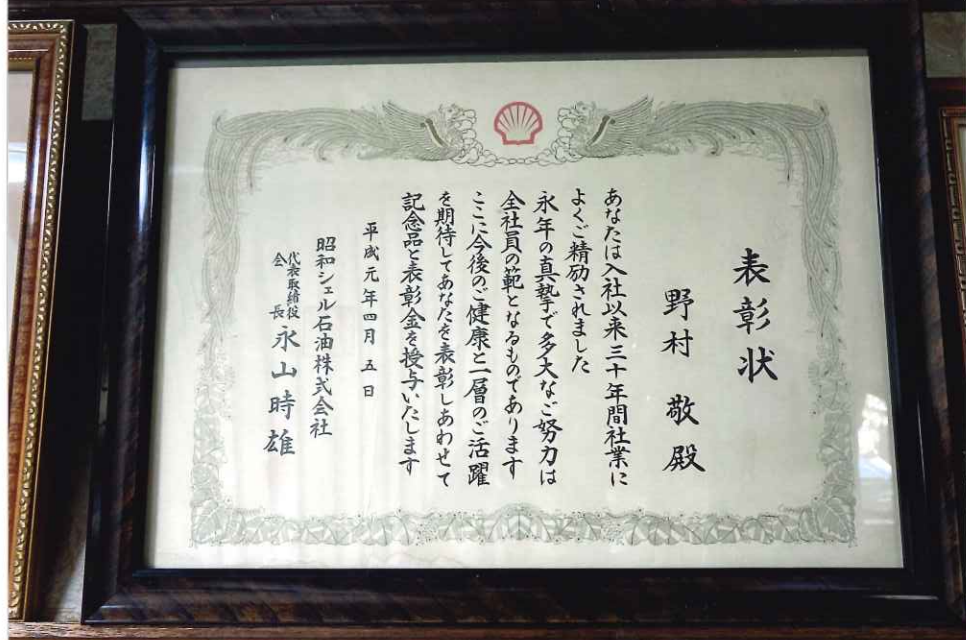 表彰状
野村 敬 殿
あなたは入社以来三十年間社業に
よくご精励されました
永年の真摯で多大なご努力は
全社員の範となるものであります
ここに今後のご健康と一層のご活躍
を期待してあなたを表彰しあわせて
記念品と表彰金を授与いたします
平成元年四月五日
昭和シェル石油株式会社
代表取締役
会長 永山時雄